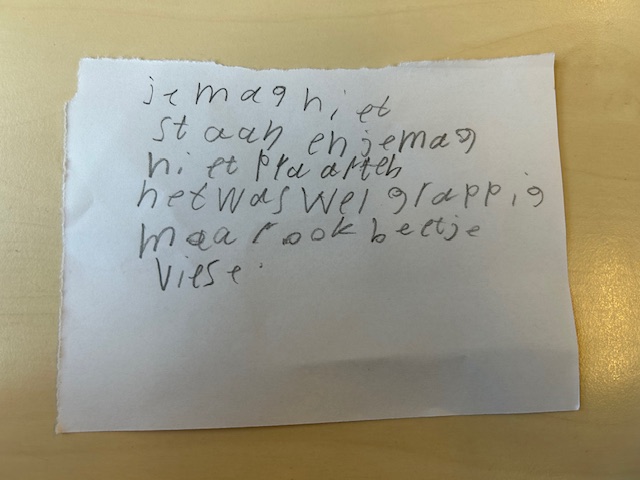 je mag niet
staan en je mag
niet praaten
het was wel grappig
maar ook beetje
viese.